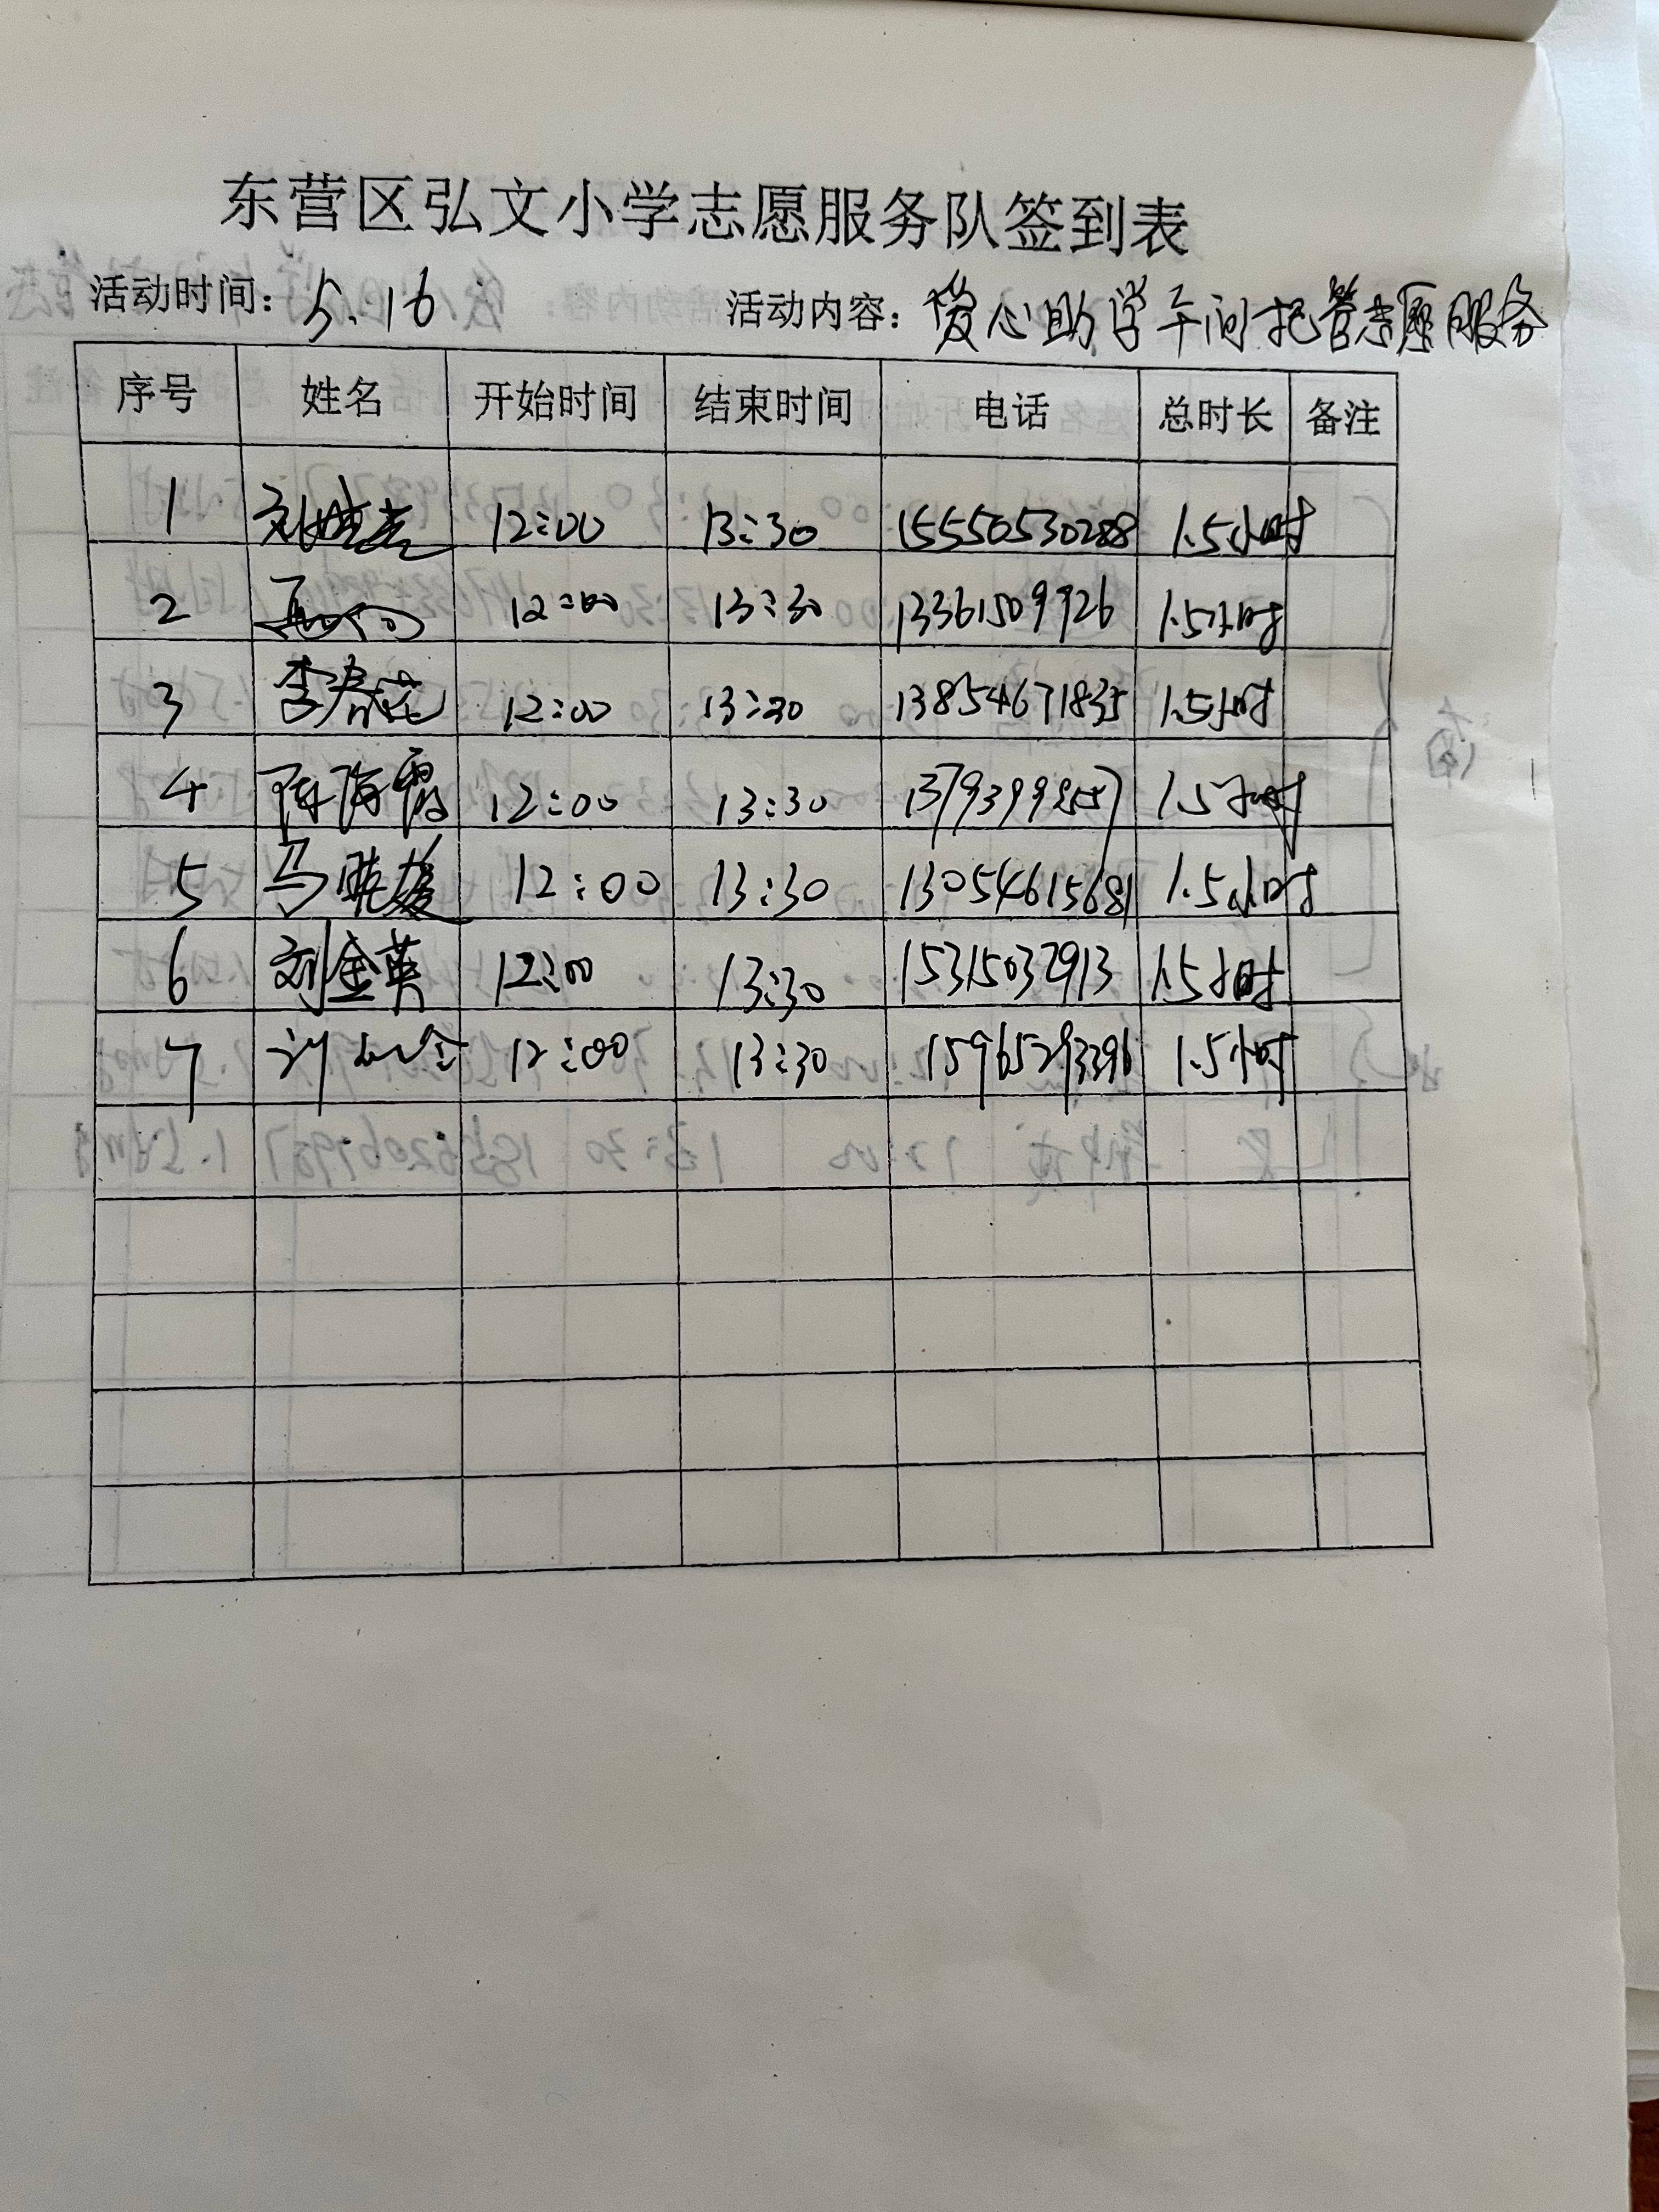 东营区弘文小学志愿服务队签到表
活动时间：5.16 活动内容：爱心助学午间托管志愿服务
序号 姓名 开始时间 结束时间 电话 总时长 备注
1 刘 12:00 13:30 15550530288 1.5小时
2 12:00 13:30 13361509926 1.5小时
3 李春花 12:00 13:30 13854671835 1.5小时
4 陈海霞 12:00 13:30 1.5小时
5 马晓媛 12:00 13:30 13054615681 1.5小时
6 刘金英 12:00 13:30 15315032913 1.5小时
7 12:00 13:30 15965293396 1.5小时